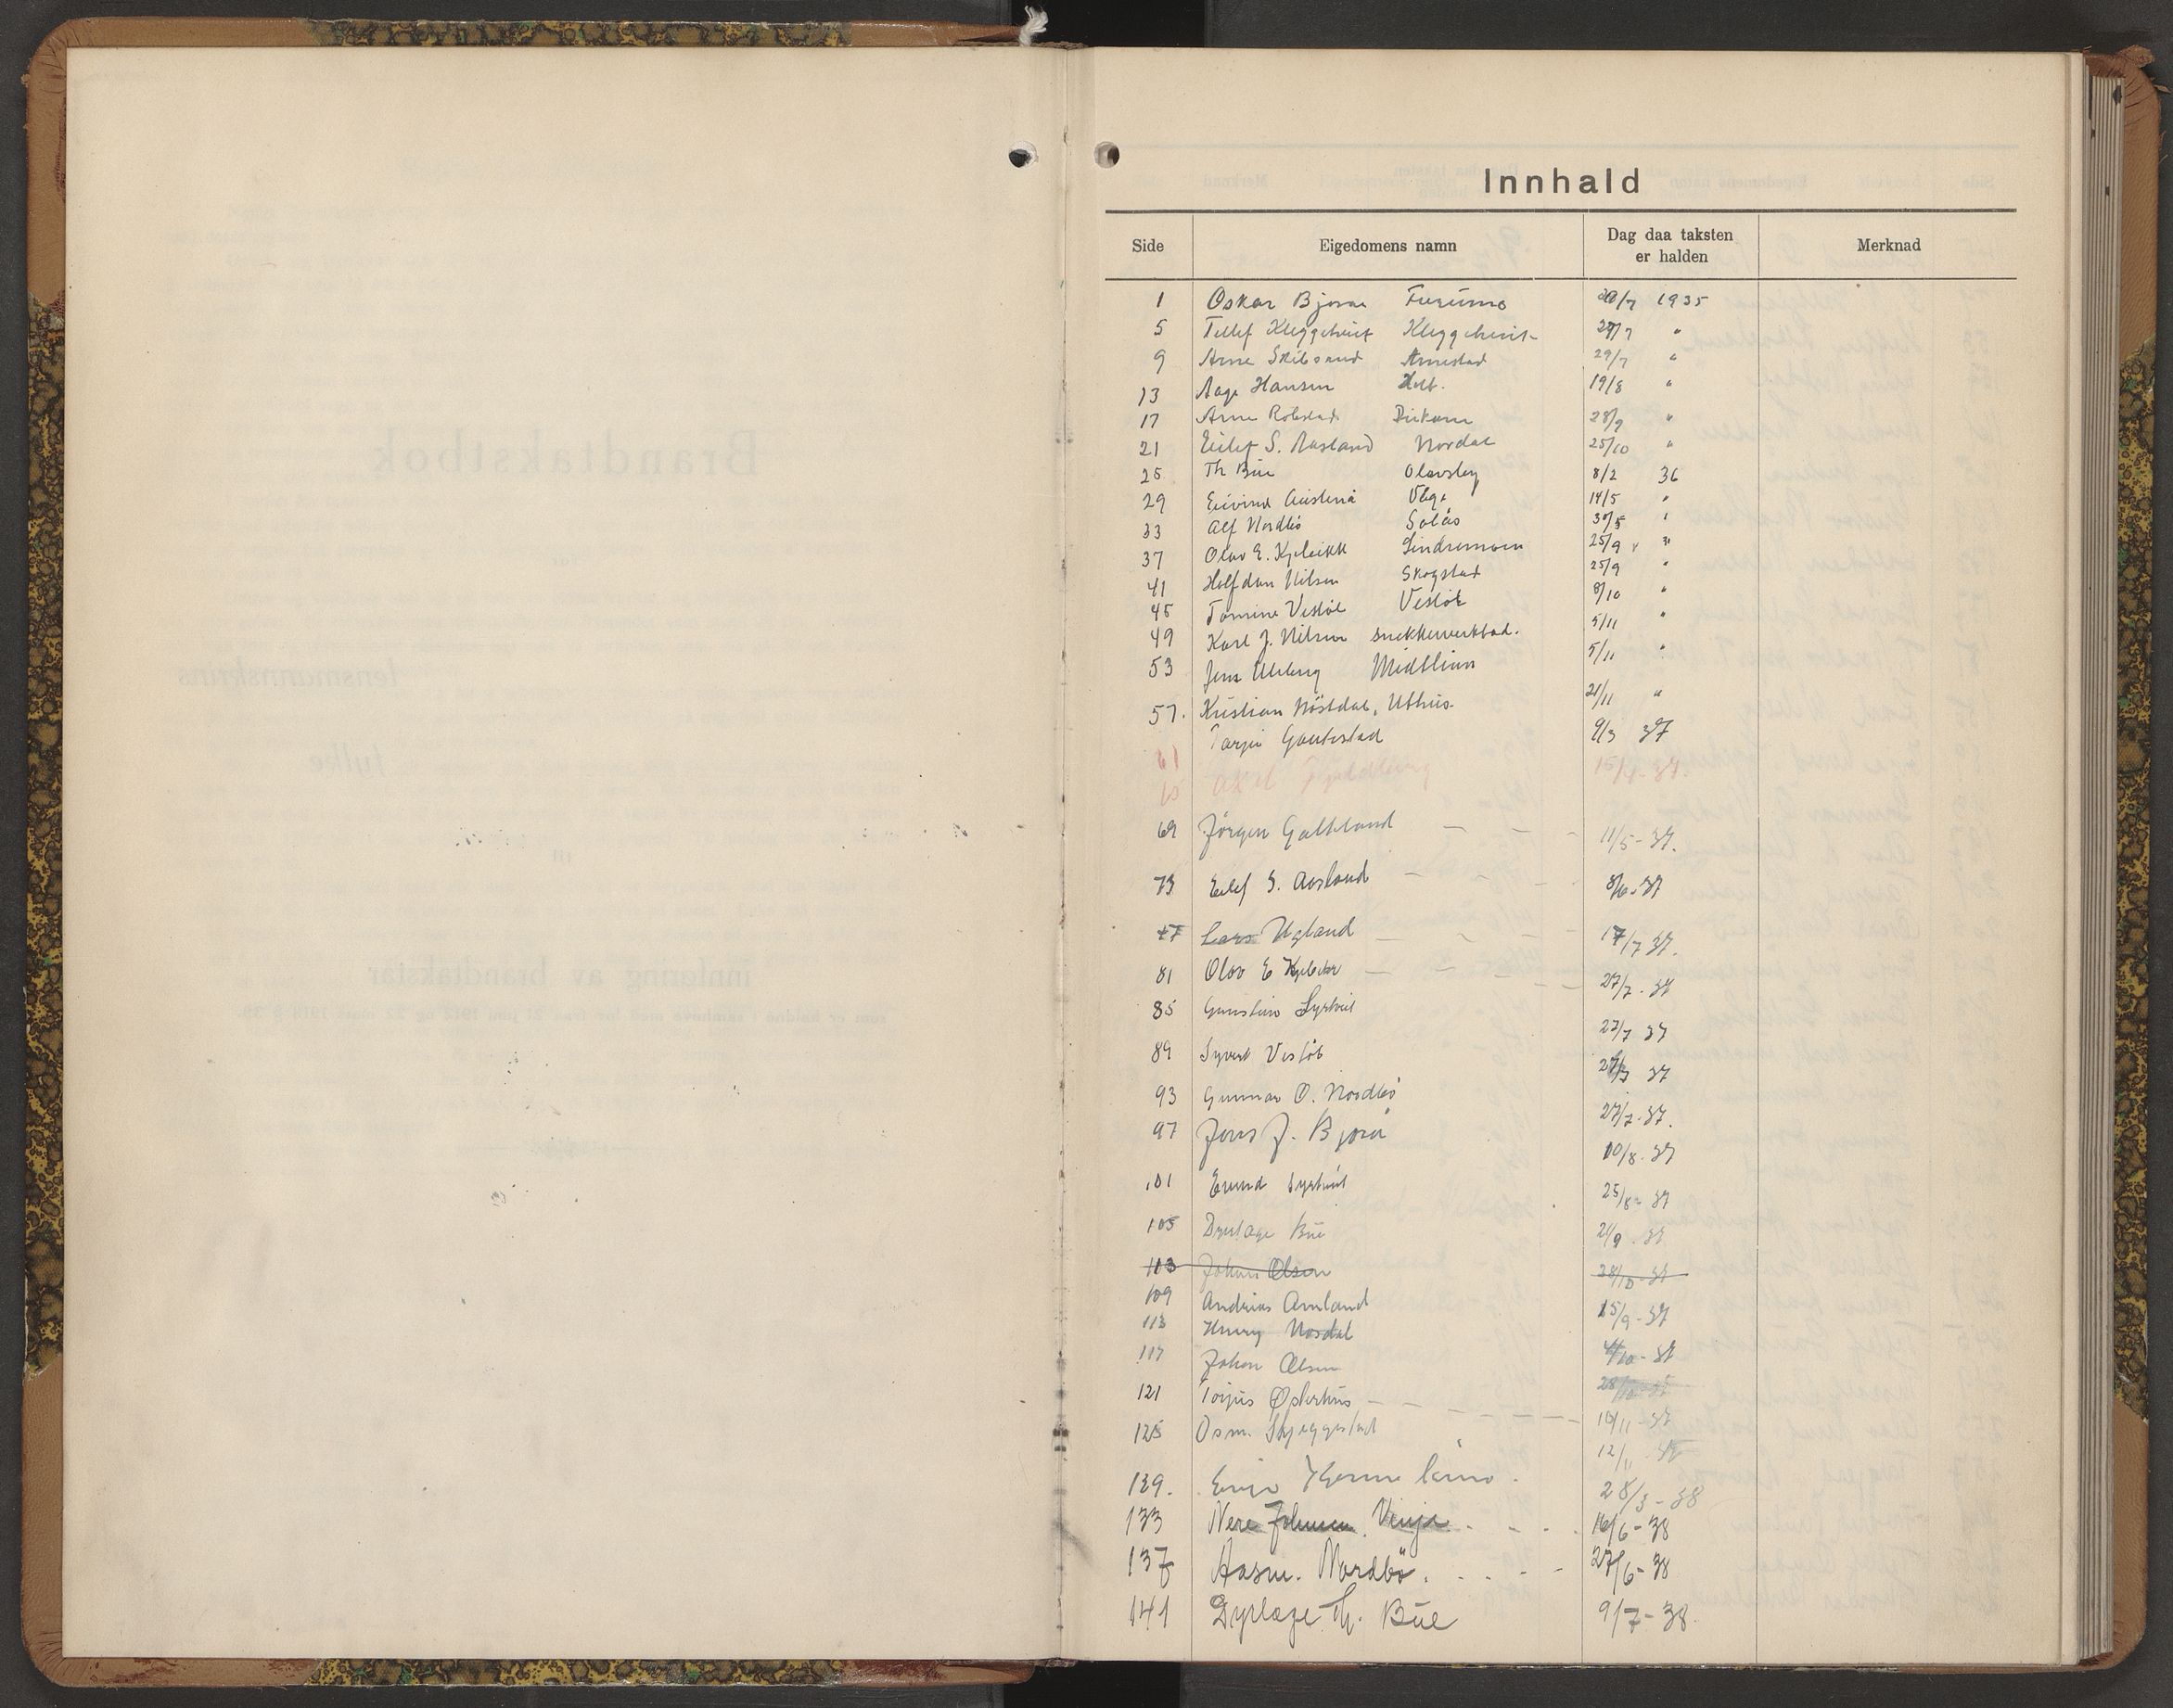 Innhald
Side Eigedomens namn Dag daa taksten er halden Merknad
1 Oskar Bjoraa Furumo 20/7 1935
5 Tellef Kleggetveit Kleggetveit 29/7 "
9 Arne Skibsand Arnestad 29/7 "
13 Aage Hansen 19/8 "
17 Arne Robstad 28/9 "
21 Eilef S. Aasland Nordal 25/10 "
25 Th Bue Olavsby 8/2 36
29 Eivind 14/5 "
33 Alf Nordbö Solås 30/5 "
37 Olav E. Kyleikk Lindremoen 25/9 "
41 Halfdan Nilsen Skogstad 25/9 "
45 Tomine Vestöl Vestöl 8/10 "
49 Karl J. Nilsen 5/11 "
53 Jens Midtliun 5/11 "
57. Kristian Nöstdal, Uthus. 21/11 "
61 Tarjei Gautestad 9/3 37
65 Aksel Fjeldberg 15/4-37.
69 Jörgen Galteland 11/5-37.
73 Eilef S. Aasland 8/6-37
77 Lars Ugland 17/7 37.
81 Olav E Kyleikk 27/7-37
85 Gunstein Syrtveit 27/7 37
89 Syvert Vestöl 27/7 37
93 Gunnar O. Nordbö 27/7-37.
97 Jens J. Bjorå 10/8-37
101 Eivind Syrtveit 25/8-37
105 Dyrlæge Bue 21/9-37
113 Johan Olsen 28/10-37
109 Andreas Omland 15/9-37
113 Henry Nordal 4/10-37
117 Johan Olsen 28/10-37
121 Torjus Østerhus 10/11-37
125 Osm. Skjeggestad 12/11-37
129. 28/3-38
133 Nere Johnsen Vinje 16/6-38
137 Aasm. Nordbö. 27/6-38
141 Dyrlæge Th. Bue 9/7-38.